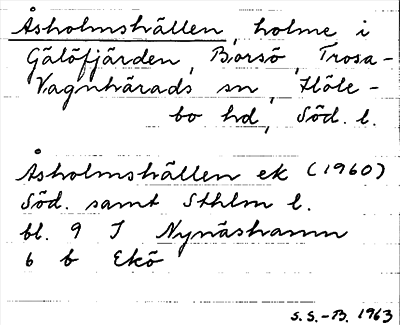 Åsholmshällen, holme i
Gälöfjärden, Borsö, Trosa-
Vagnhärads sn, Höle-
bo hd, Söd. l.
Åsholmshällen ek (1960)
Söd. samt Sthlm l.
bl. 9 I Nynäshamn
6 b Ekö
S.S.-B. 1963